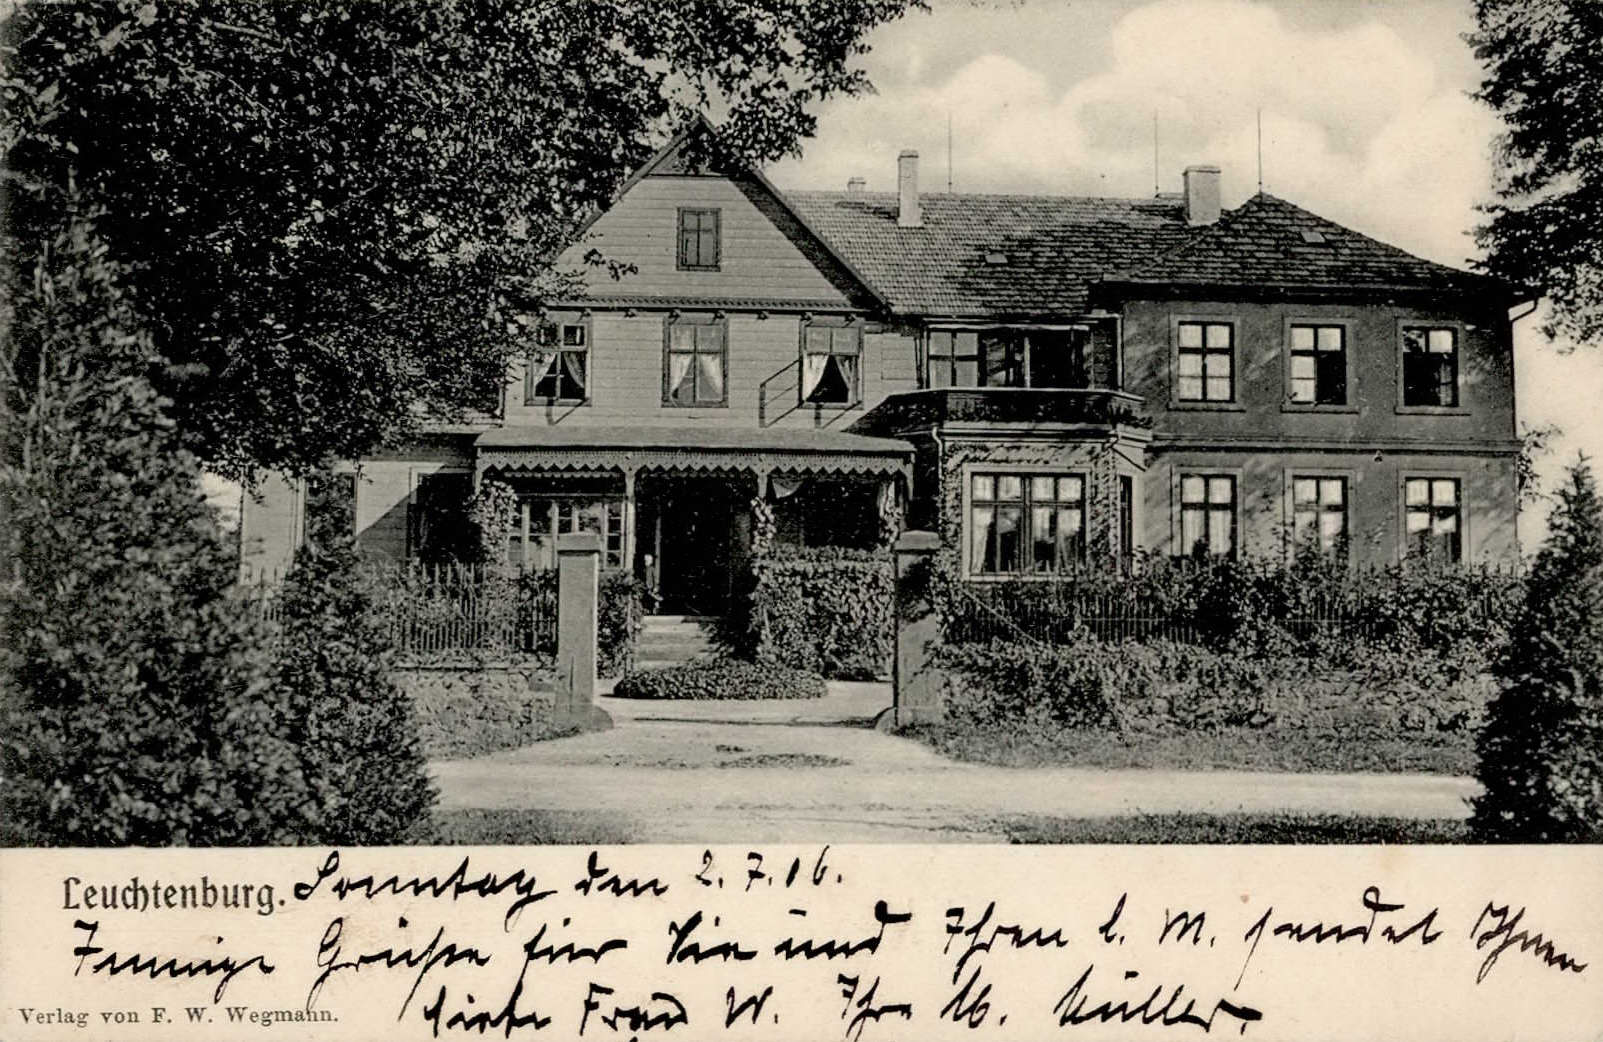 Leuchtenburg. Sonntag den 2. 7. 06.
Innige Grüße für Sie und Ihren l. M. sendet Ihnen
liebe Frau W. Ihre M. Müller.
Verlag von F. W. Wegmann.